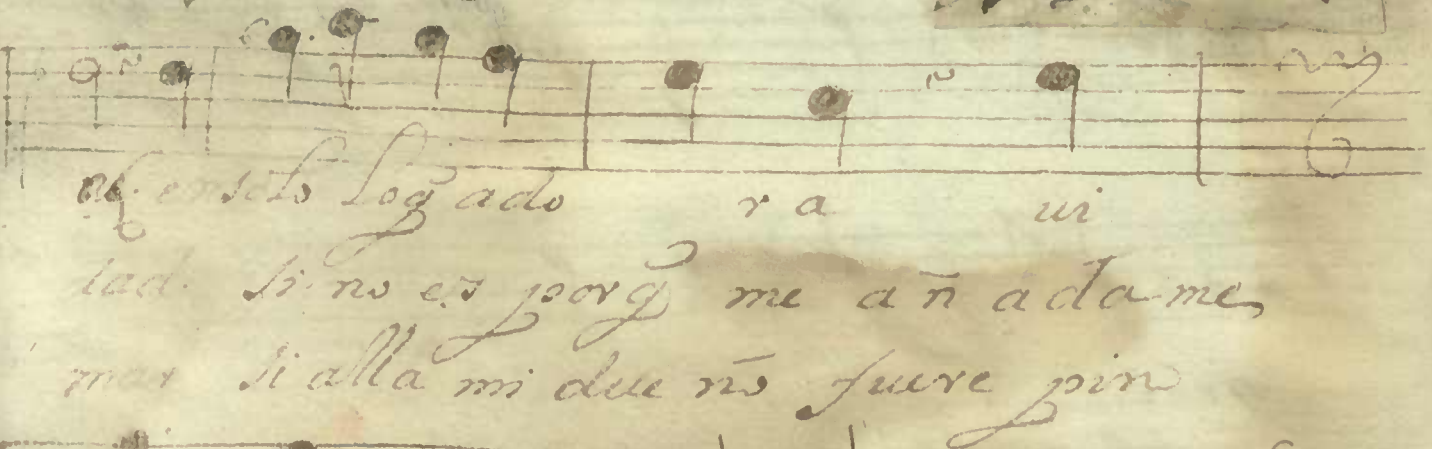 en solo log̃ ado ra ui
dad. si no es porq̃ me añ ada me
mar si alla mi due ño fuere pin